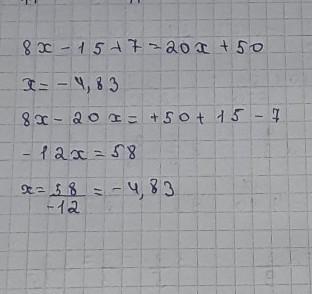 8x - 15 + 7 = 20x + 50
x = -4,83
8x - 20x = +50 + 15 - 7
-12x = 58
x = 58/-12 = -4,83